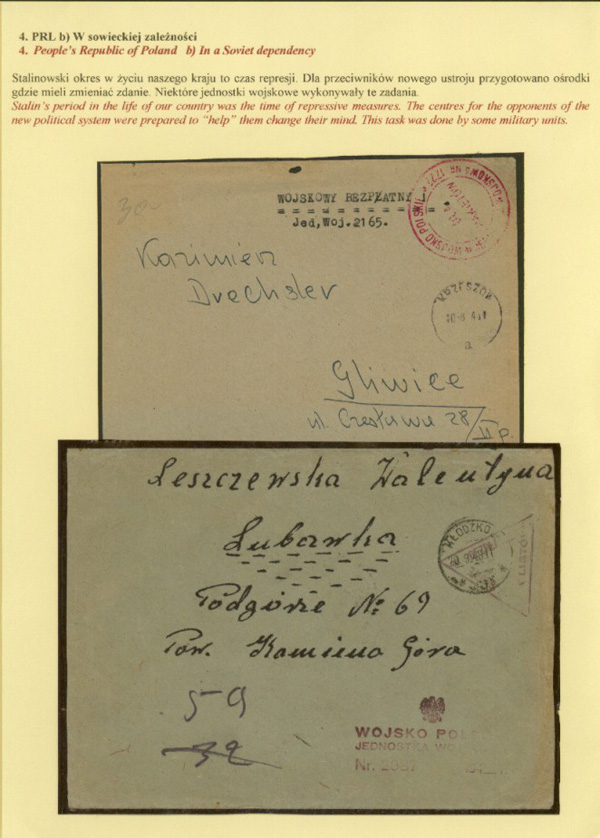 4. PRL b) W sowieckiej zależności
4. People's Republic of Poland b) In a Soviet dependency
Stalinowski okres w życiu naszego kraju to czas represji. Dla przeciwników nowego ustroju przygotowano ośrodki
gdzie mieli zmieniać zdanie. Niektóre jednostki wojskowe wykonywały te zadania.
Stalin's period in the life of our country was the time of repressive measures. The centres for the opponents of the
new political system were prepared to "help" them change their mind. This task was done by some military units.
30
WOJSKOWY BEZPŁATNY
Jed,Woj.2165.
WOJSKO POLSKIE
Kazimierz
Drechsler
RZESZÓW
a
Gliwice
ul. Czesława 28/II p.
Leszczewska Walentyna
Lubawka
KŁODZKO
Podgórze № 69
Pow. Kamienna Góra
59
32
WOJSKO POL
JEDNOSTKA WO
Nr.